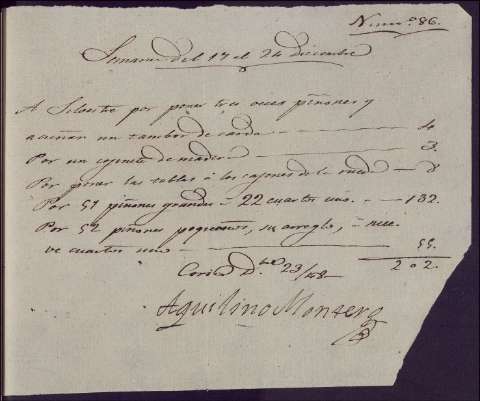 Num.º 86.
Semana del 17 al 24 diciembre
A Silvestre por poner tres piñones y
acuñar un tambor de carda — 4.
Por un cojinete de madera — 3.
Por poner las tablas á los cajones de la rueda — 8
Por 51 piñones grandes á 22 cuartos uno. — 132.
Por 52 piñones pequeños, su arreglo, á nue-
ve cuartos uno — 55.
202.
D.bre 23/48
Aquilino Monzero